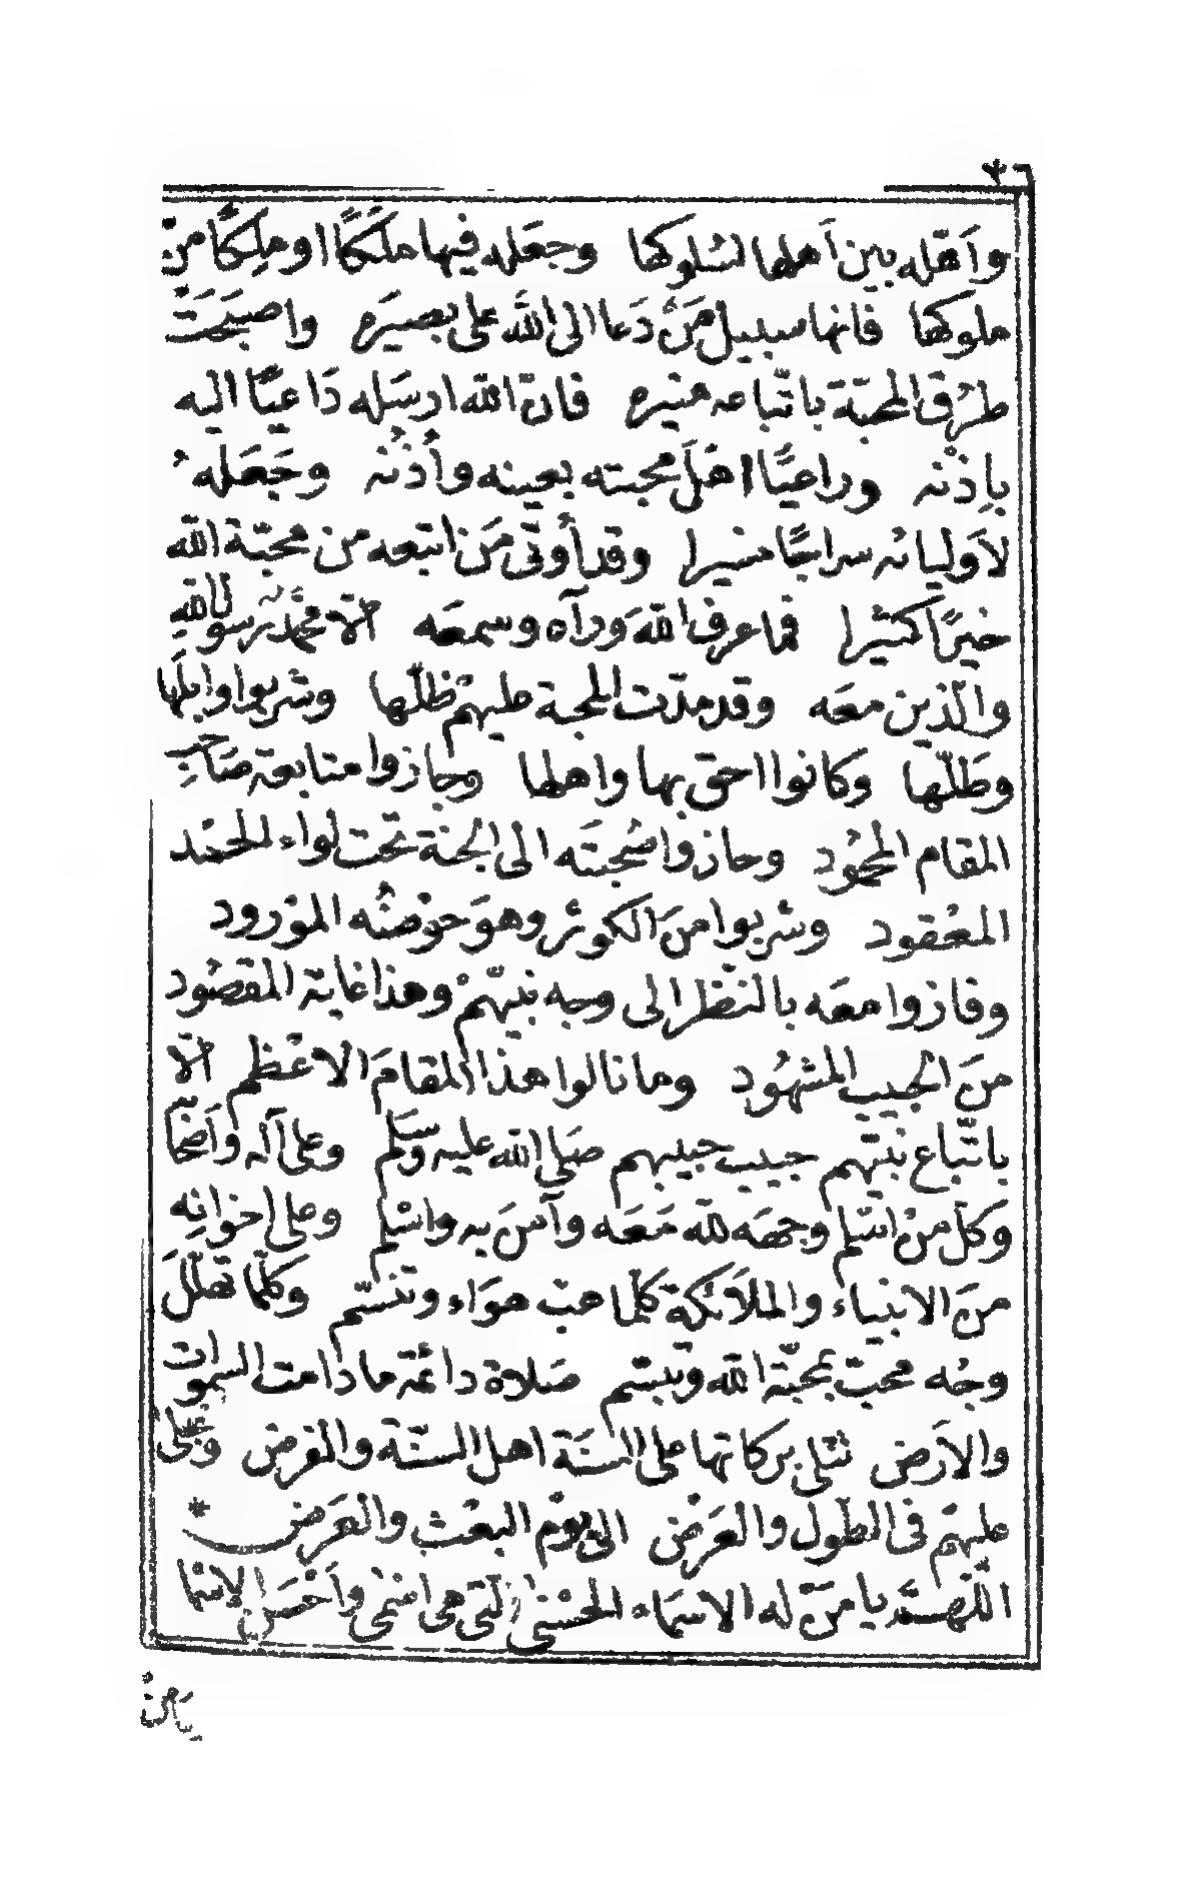 ٦*
وأهّله بين أهلها لسُلوكها وجعَله فيها ملَكًا او ملِكًا مِنْ
ملوكها فانها سبيل مَنْ دَعا الى اللّه على بصيَره واصبَحَتْ
طرُق المحبّة باتّباعه منيره فانّ اللّه ارسَله دَاعيًا اليه
بإذنه وراعيًا اهلَ محبته بعينه وأُذُنه وجَعَلهُ
لأوليائه سراجًا منيرا وقد أُوتى مَن اتبعه من محبّة اللّه
خيرًا كثيرا فما عرف اللّهَ ورآه وسمعَه الّا محمّد رسول اللّه
والّذين معَه وقد مدّت المحبة عليهمْ ظلّها وشربوا وابلَها
وطَلّها وكانوا احق بها واهلها وجازوا متابعة صَاحب
المقام المحمُود وحازوا صُحبتَه الى الجنة تحت لواء الحمْد
المعْقود وشربوا منَ الكوثر وهوَ حوْضُه المورود
وفازوا معَه بالنّظر الى وجه نبيّهمْ وهذا غاية المقصُود
منَ الحبيب المشهُود وما نالوا هذا المقامَ الاعْظم الّا
باتّباع نبيّهم حبيب حبيبهم صَلى اللّه عليه وسَلم وعلى آله وأصْحابه
وَكلّ منْ اسْلم وجهَه للّه مَعَه وآنسَ به واسْلم وعلى إخوانِه
منَ الانبياء والملَائكة كلّما هبّ هوَاء وتنسّم وكلّما تهلّلَ
وجْه محبّ بمحبّة اللّه وتبسّم صَلاة دائمة ما دامت السموات
والأرْض تتْلى بركاتها على السنَة اهل السنّة والفرض وتجْلى
عليهمْ فى الطّول والعَرْض الى يوْم البعْث والعَرض *
اللّهُمَّ يا مَنْ له الاسمَاء الحسْنى التى هى اسنى وأحْسَن الاسْما
يا مَنْ